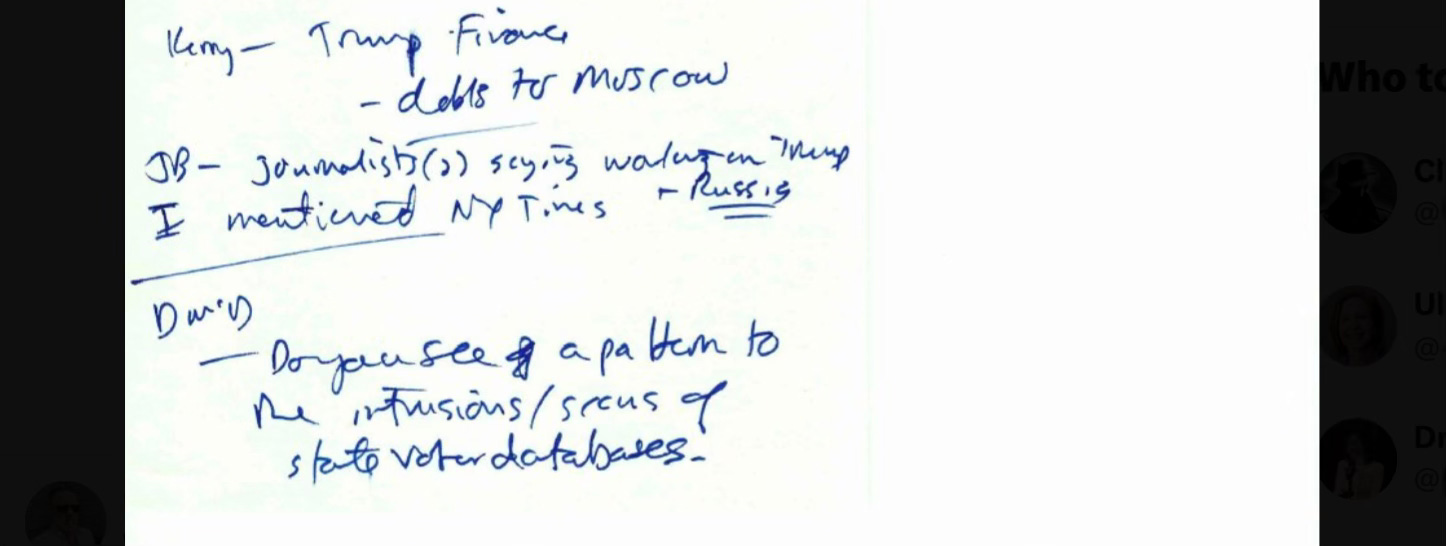 Kerry — Trump Finance
- debts to Moscow
JB — Journalists(2) saying working on Trump
+ Russia
I mentioned NY Times
David
— Do you see a pattern to
the intrusions/scans of
state voter databases.
Who to